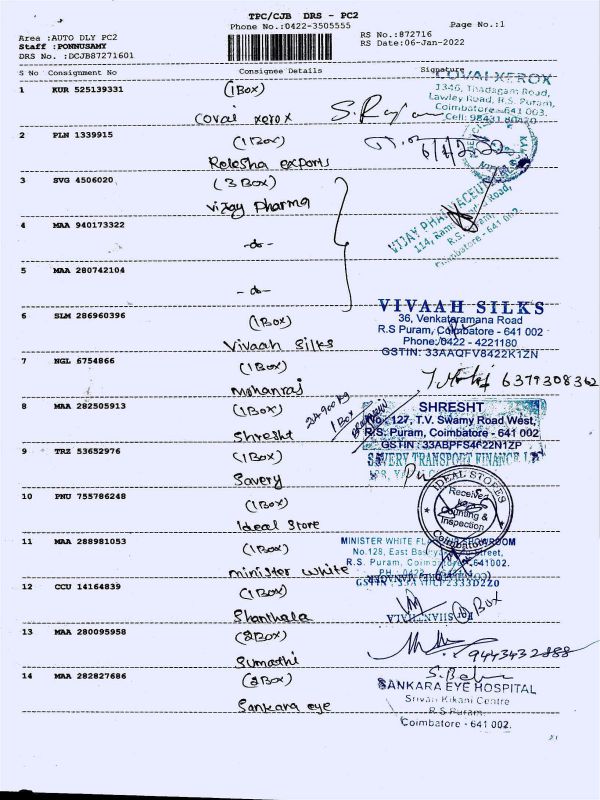 TPC/CJB DRS - PC2
Phone No.:0422-3505555 Page No.:1
Area :AUTO DLY PC2 RS No.:872716
Staff :PONNUSAMY RS Date:06-Jan-2022
DRS No. :DCJB87271601
S No Consignment No Consignee Details Signature
1 KUR 525139331 (1Box)
Covai xerox
COVAI XEROX
1346, Thadagam Road,
Lawley Road, R.S. Puram,
Coimbatore-641 003.
Cell: 98431 80420
2 PLN 1339915 (1Box)
exports
3 SVG 4506020 (3Box)
Vijay Pharma
VIJAY
114,
R.S.
Coimbatore - 641 002.
4 MAA 940173322 -do-
5 MAA 280742104 -do-
6 SLM 286960396 (1Box)
Vivaah Silks
VIVAAH SILKS
36, Venkataramana Road
R.S Puram, Coimbatore - 641 002
Phone:0422 - 4221180
GSTIN: 33AAQFV8422K1ZN
7 NGL 6754866 (1Box)
Mohanraj
6379308362
8 MAA 282505913 (1Box)
Shresht
1 Box
SHRESHT
No: 127, T.V. Swamy Road West,
R.S. Puram, Coimbatore - 641 002
GSTIN :33ABPFS4622N1ZP
9 TRZ 53652976 (1Box)
Savery
SAVERY TRANSPORT FINANCE
10 PNU 755786248 (1Box)
Ideal Store
IDEAL STORES
Received
Counting &
Inspection
Coimbatore
11 MAA 288981053 (1Box)
minister white
MINISTER WHITE SHOWROOM
No.128, East Street,
R.S. Puram, Coimbatore-641002.
12 CCU 14164839 (1Box)
Shanthala
For SHANTHALA
Box
13 MAA 280095958 (2Box)
Sumathi
9443432888
14 MAA 282827686 (2Box)
Sankara eye
SANKARA EYE HOSPITAL
Srivari Kikani Centre
R.S Puram,
Coimbatore - 641 002.